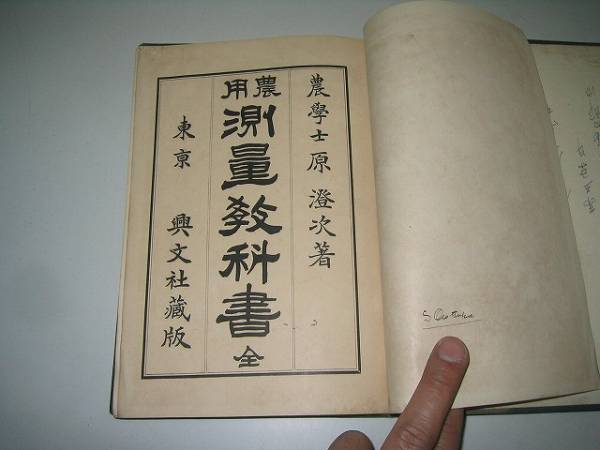 農學士 原 澄次著
農用 測量教科書 全
東京 興文社藏版